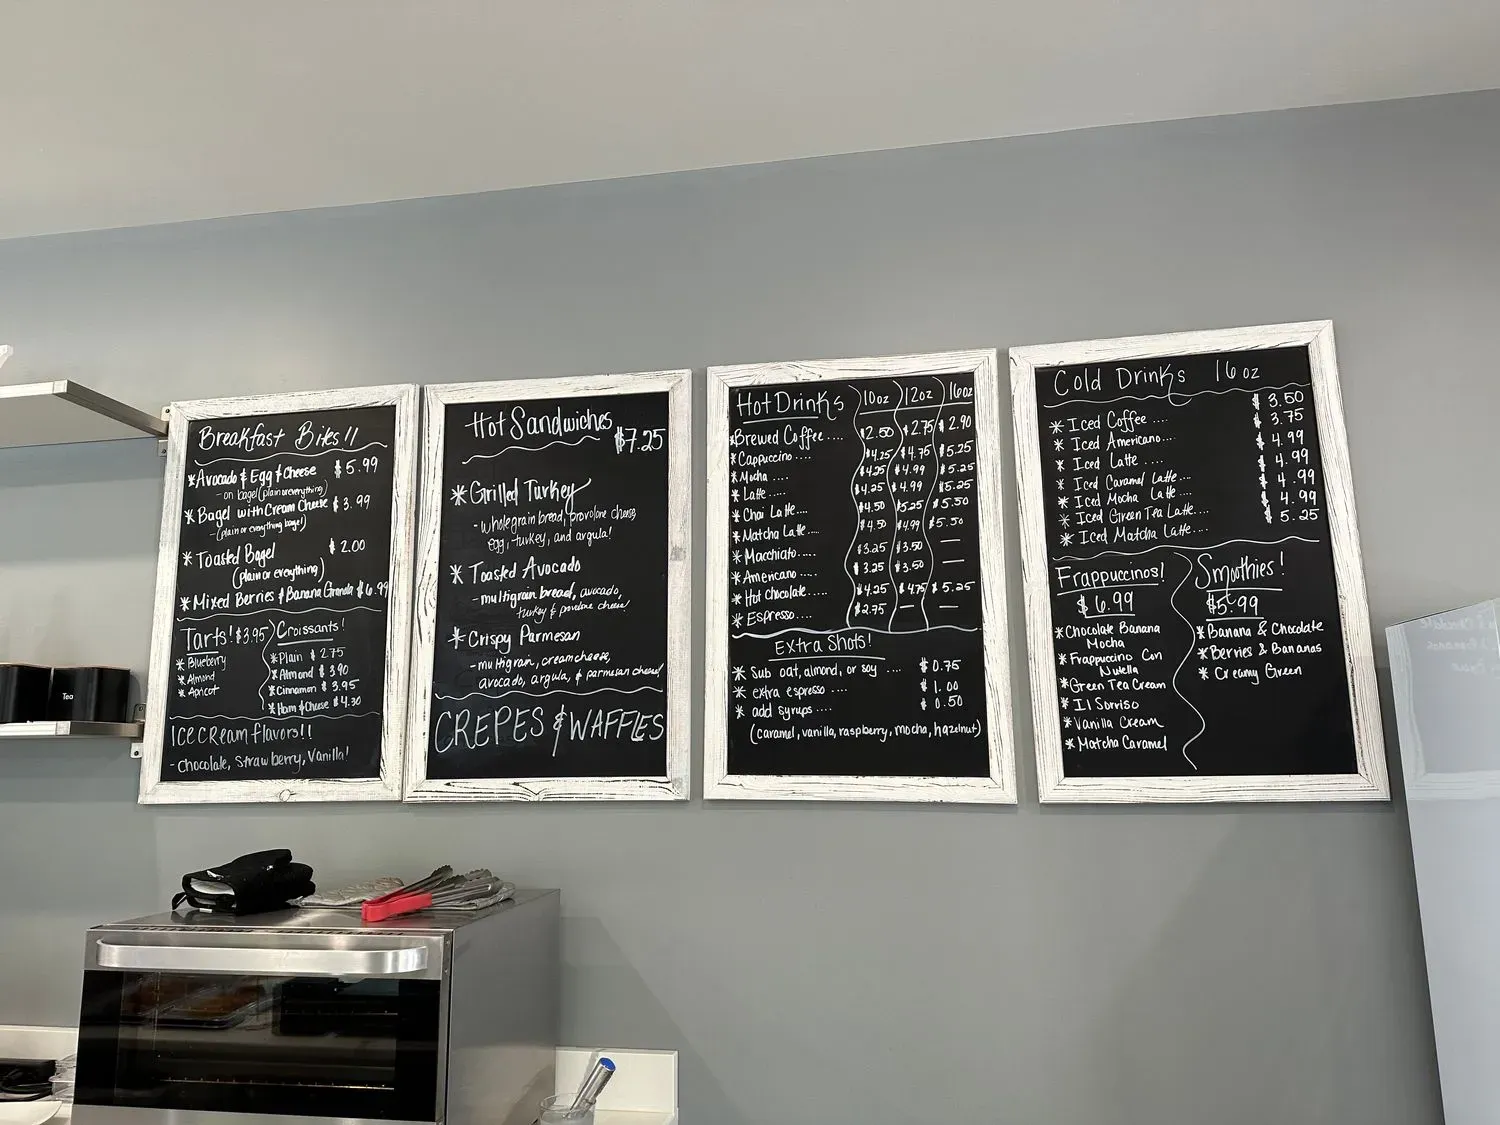 Breakfast Bites!!
*Avocado & Egg & Cheese $5.99
- on bagel (plain or everything)
*Bagel with Cream Cheese $3.99
- (plain or everything bagel)
*Toasted Bagel $2.00
(plain or everything)
*Mixed Berries & Banana Granola $6.99
Tarts! $3.95
*Blueberry
*Almond
*Apricot
Croissants!
*Plain $2.75
*Almond $3.90
*Cinnamon $3.95
*Ham & Cheese $4.30
ICE CREAM flavors!!
- Chocolate, Strawberry, Vanilla!
Hot Sandwiches
$7.25
*Grilled Turkey
- whole grain bread, provolone cheese,
egg, turkey, and argula!
*Toasted Avocado
- multigrain bread, avocado,
turkey & provolone cheese!
*Crispy Parmesan
- multigrain, creamcheese,
avocado, argula, & parmesan cheese!
CREPES & WAFFLES
Hot Drinks 10oz 12oz 16oz
*Brewed Coffee.... $2.50 $2.75 $2.90
*Cappuccino.... $4.25 $4.75 $5.25
*Mocha.... $4.25 $4.99 $5.25
*Latte.... $4.25 $4.99 $5.25
*Chai Latte.... $4.50 $5.25 $5.50
*Matcha Latte.... $4.50 $4.99 $5.50
*Macchiato..... $3.25 $3.50 —
*Americano.... $3.25 $3.50 —
*Hot Chocolate.... $4.25 $4.75 $5.25
*Espresso.... $2.75 — —
Extra Shots!
*Sub oat, almond, or soy .... $0.75
*extra espresso .... $1.00
*add syrups.... $0.50
(caramel, vanilla, raspberry, mocha, hazelnut)
Cold Drinks 16oz
*Iced Coffee.... $3.50
*Iced Americano.... $3.75
*Iced Latte .... $4.99
*Iced Caramel Latte... $4.99
*Iced Mocha Latte.... $4.99
*Iced Green Tea Latte.... $4.99
*Iced Matcha Latte.... $5.25
Frappuccinos!
$6.99
*Chocolate Banana
Mocha
*Frappuccino Con
Nutella
*Green Tea Cream
*Il Sorriso
*Vanilla Cream
*Matcha Caramel
Smoothies!
$5.99
*Banana & Chocolate
*Berries & Bananas
*Creamy Green
Tea